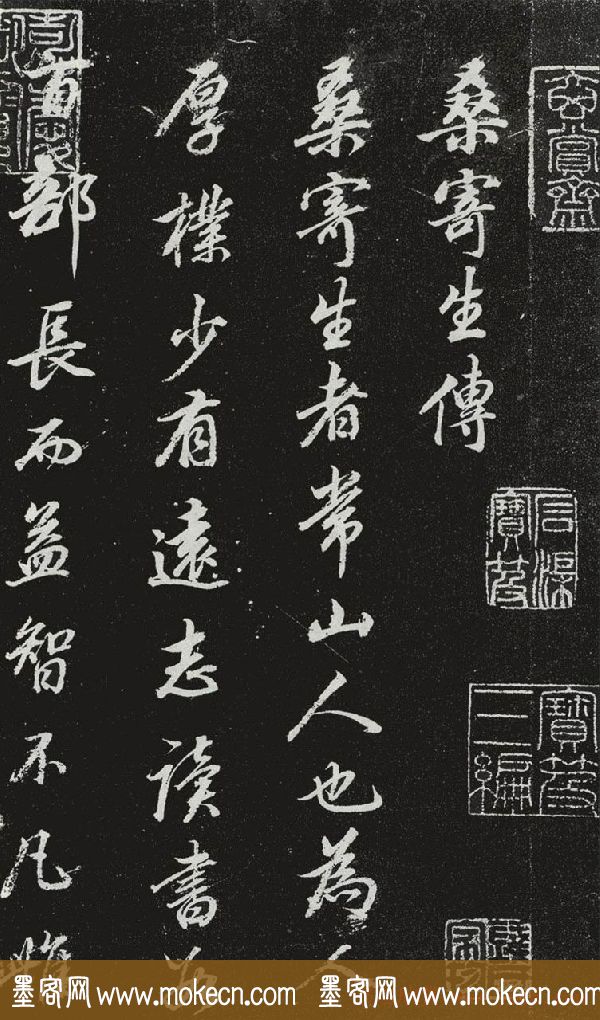 玄賞齋
石渠寶笈
寶笈三編
桑寄生傳
桑寄生者常山人也為人
厚樸少有遠志讀書
百部長而益智不凡
墨客网 www.mokecn.com 墨客网 www.mokecn.com